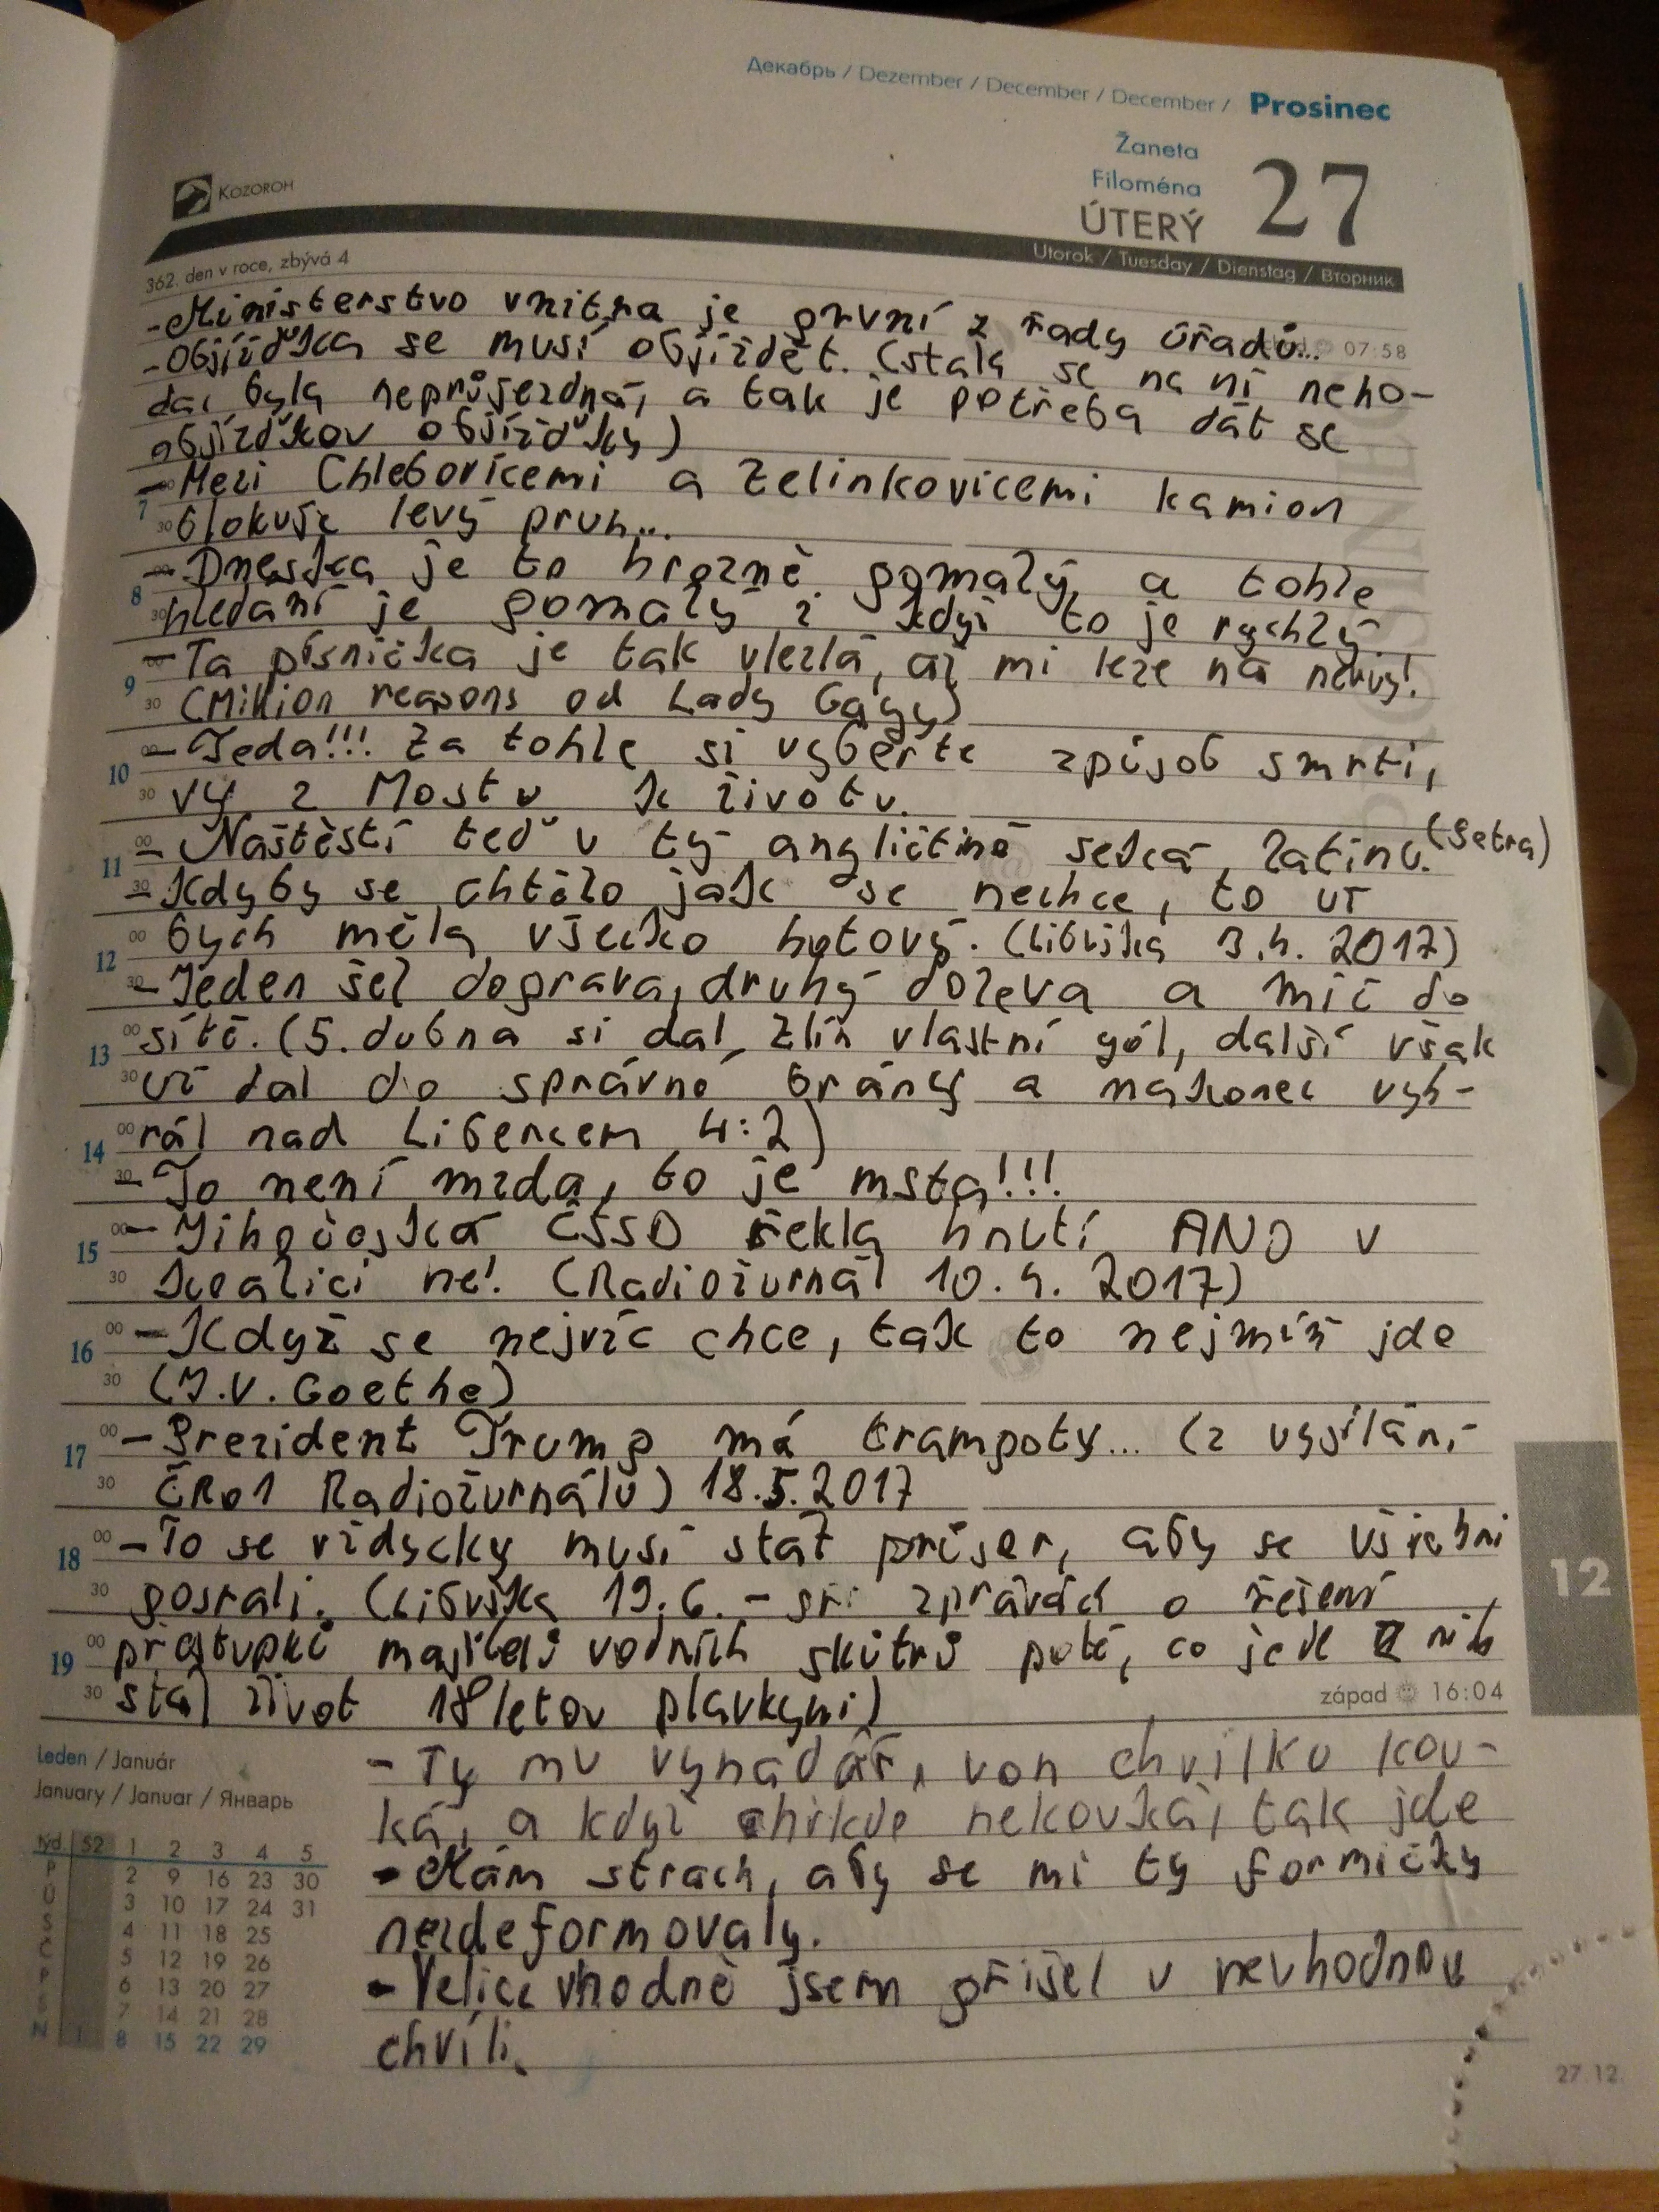 Декабрь / Dezember / December / December / Prosinec
Žaneta
Filoména
ÚTERÝ
27
KOZOROH
Utorok / Tuesday / Dienstag / Вторник
362. den v roce, zbývá 4
-Ministerstvo vnitra je první z řady úřadů...
07:58
-Objížďka se musí objíždět. (stala se na ní neho-
da, byla neprůjezdná, a tak je potřeba dát se
objížďkou objížďky)
-Mezi Chlebovicemi a Zelinkovicemi kamion
7 30 blokuje levý pruh...
00 -Dneska je to hrozně pomalý, a tohle
8 30 hledání je pomalý i když to je rychlý
00 -Ta písnička je tak vlezlá, až mi leze na nervy!
9 30 (Million reasons od Lady Gagy)
00 -Jeda!!! Za tohle si vyberte způsob smrti,
10 30 vy z Mostu k životu.
00 - Naštěstí teď v tý angličtině seká latinu. (Setra)
11 30 -Kdyby se chtělo jak se nechce, to už
00 bych měla všecko hotový. (Libuška 3.4. 2017)
12 30 -Jeden šel doprava, druhý doleva a míč do
00 sítě. (5. dubna si dal Zlín vlastní gól, další však
13 30 už dal do správné brány a nakonec vyh-
00 rál nad Libercem 4:2)
14 30 -To není mzda, to je msta!!!
00 -Jihočeská ČSSD řekla hnutí ANO v
15 30 koalici ne! (Radiožurnál 10.4. 2017)
00 -Když se nejvíc chce, tak to nejmíň jde
16 30 (J.V. Goethe)
00 -Prezident Trump má trampoty... (z vysílání
17 30 ČRo1 Radiožurnálu) 18.5.2017
00 -To se vždycky musí stát průser, aby se všichni
18 30 posrali. (Libuška 19.6. - při zprávách o řešení
00 přestupků majitelů vodních skútrů poté, co jeden z nich
19 30 stál život 18letou plavkyni)
západ 16:04
- Ty mu vynadáš, von chvilku kou-
ká, a když chvilku nekouká, tak jde
- Mám strach, aby se mi ty formičky
nezdeformovaly.
- Velice vhodně jsem přišel v nevhodnou
chvíli.
Leden / Január
January / Januar / Январь
týd. 52 1 2 3 4 5
P 2 9 16 23 30
Ú 3 10 17 24 31
S 4 11 18 25
Č 5 12 19 26
P 6 13 20 27
S 7 14 21 28
N 1 8 15 22 29
12
27.12.